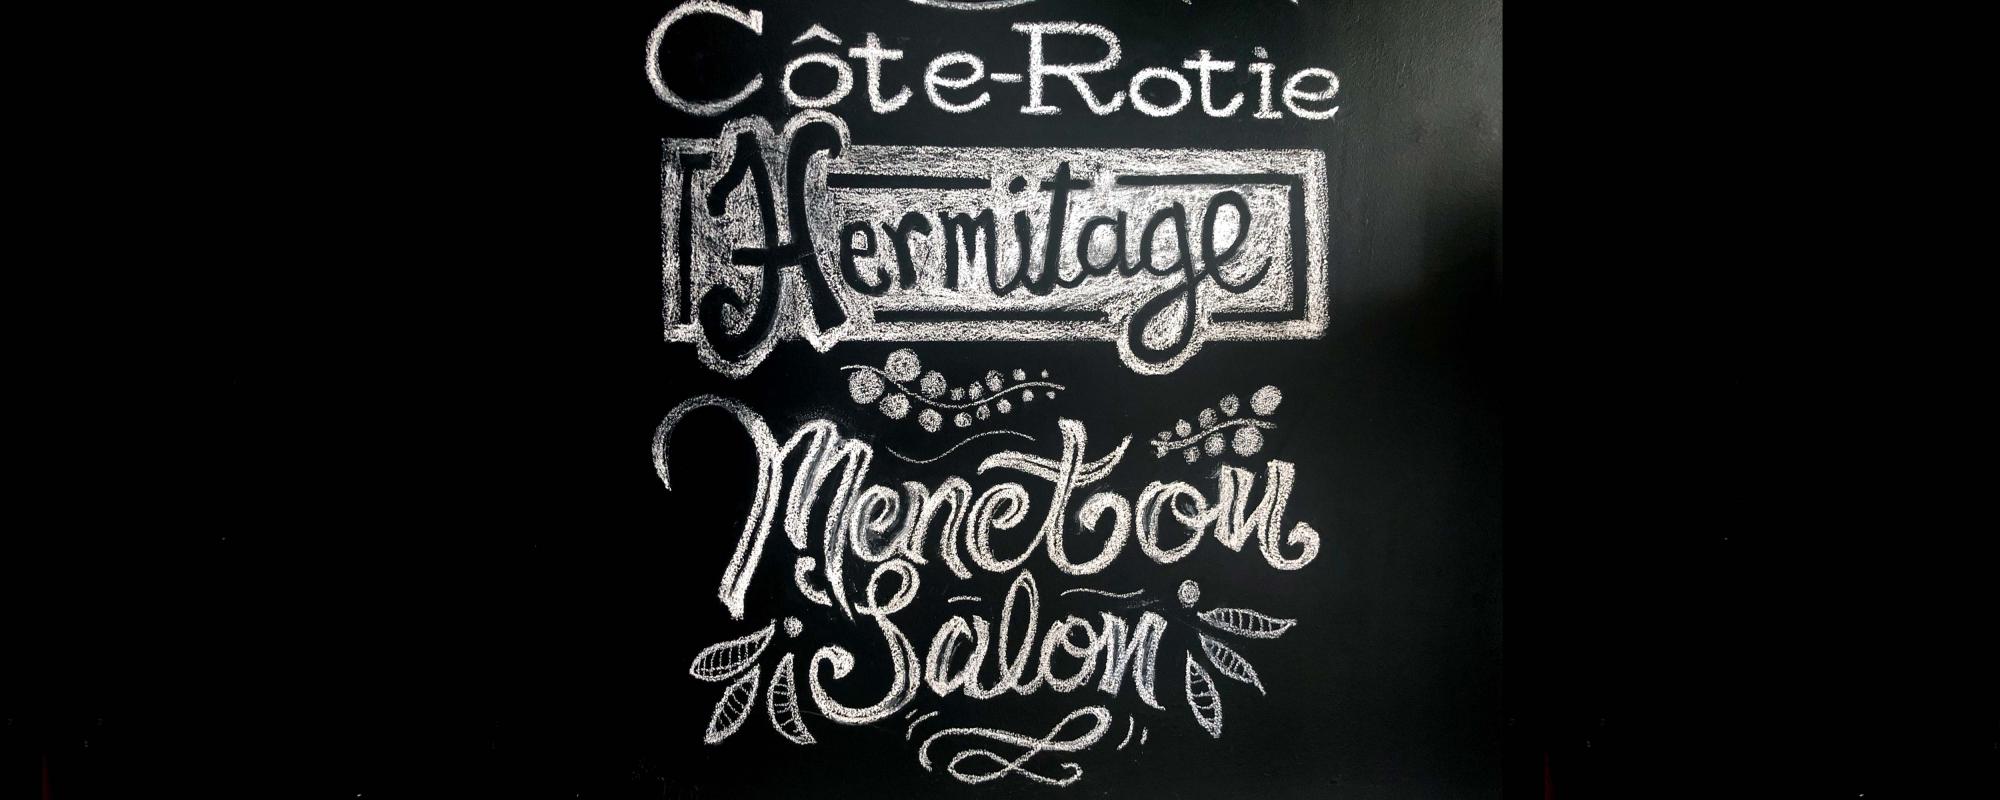 Côte-Rotie
Hermitage
Menetou
Salon